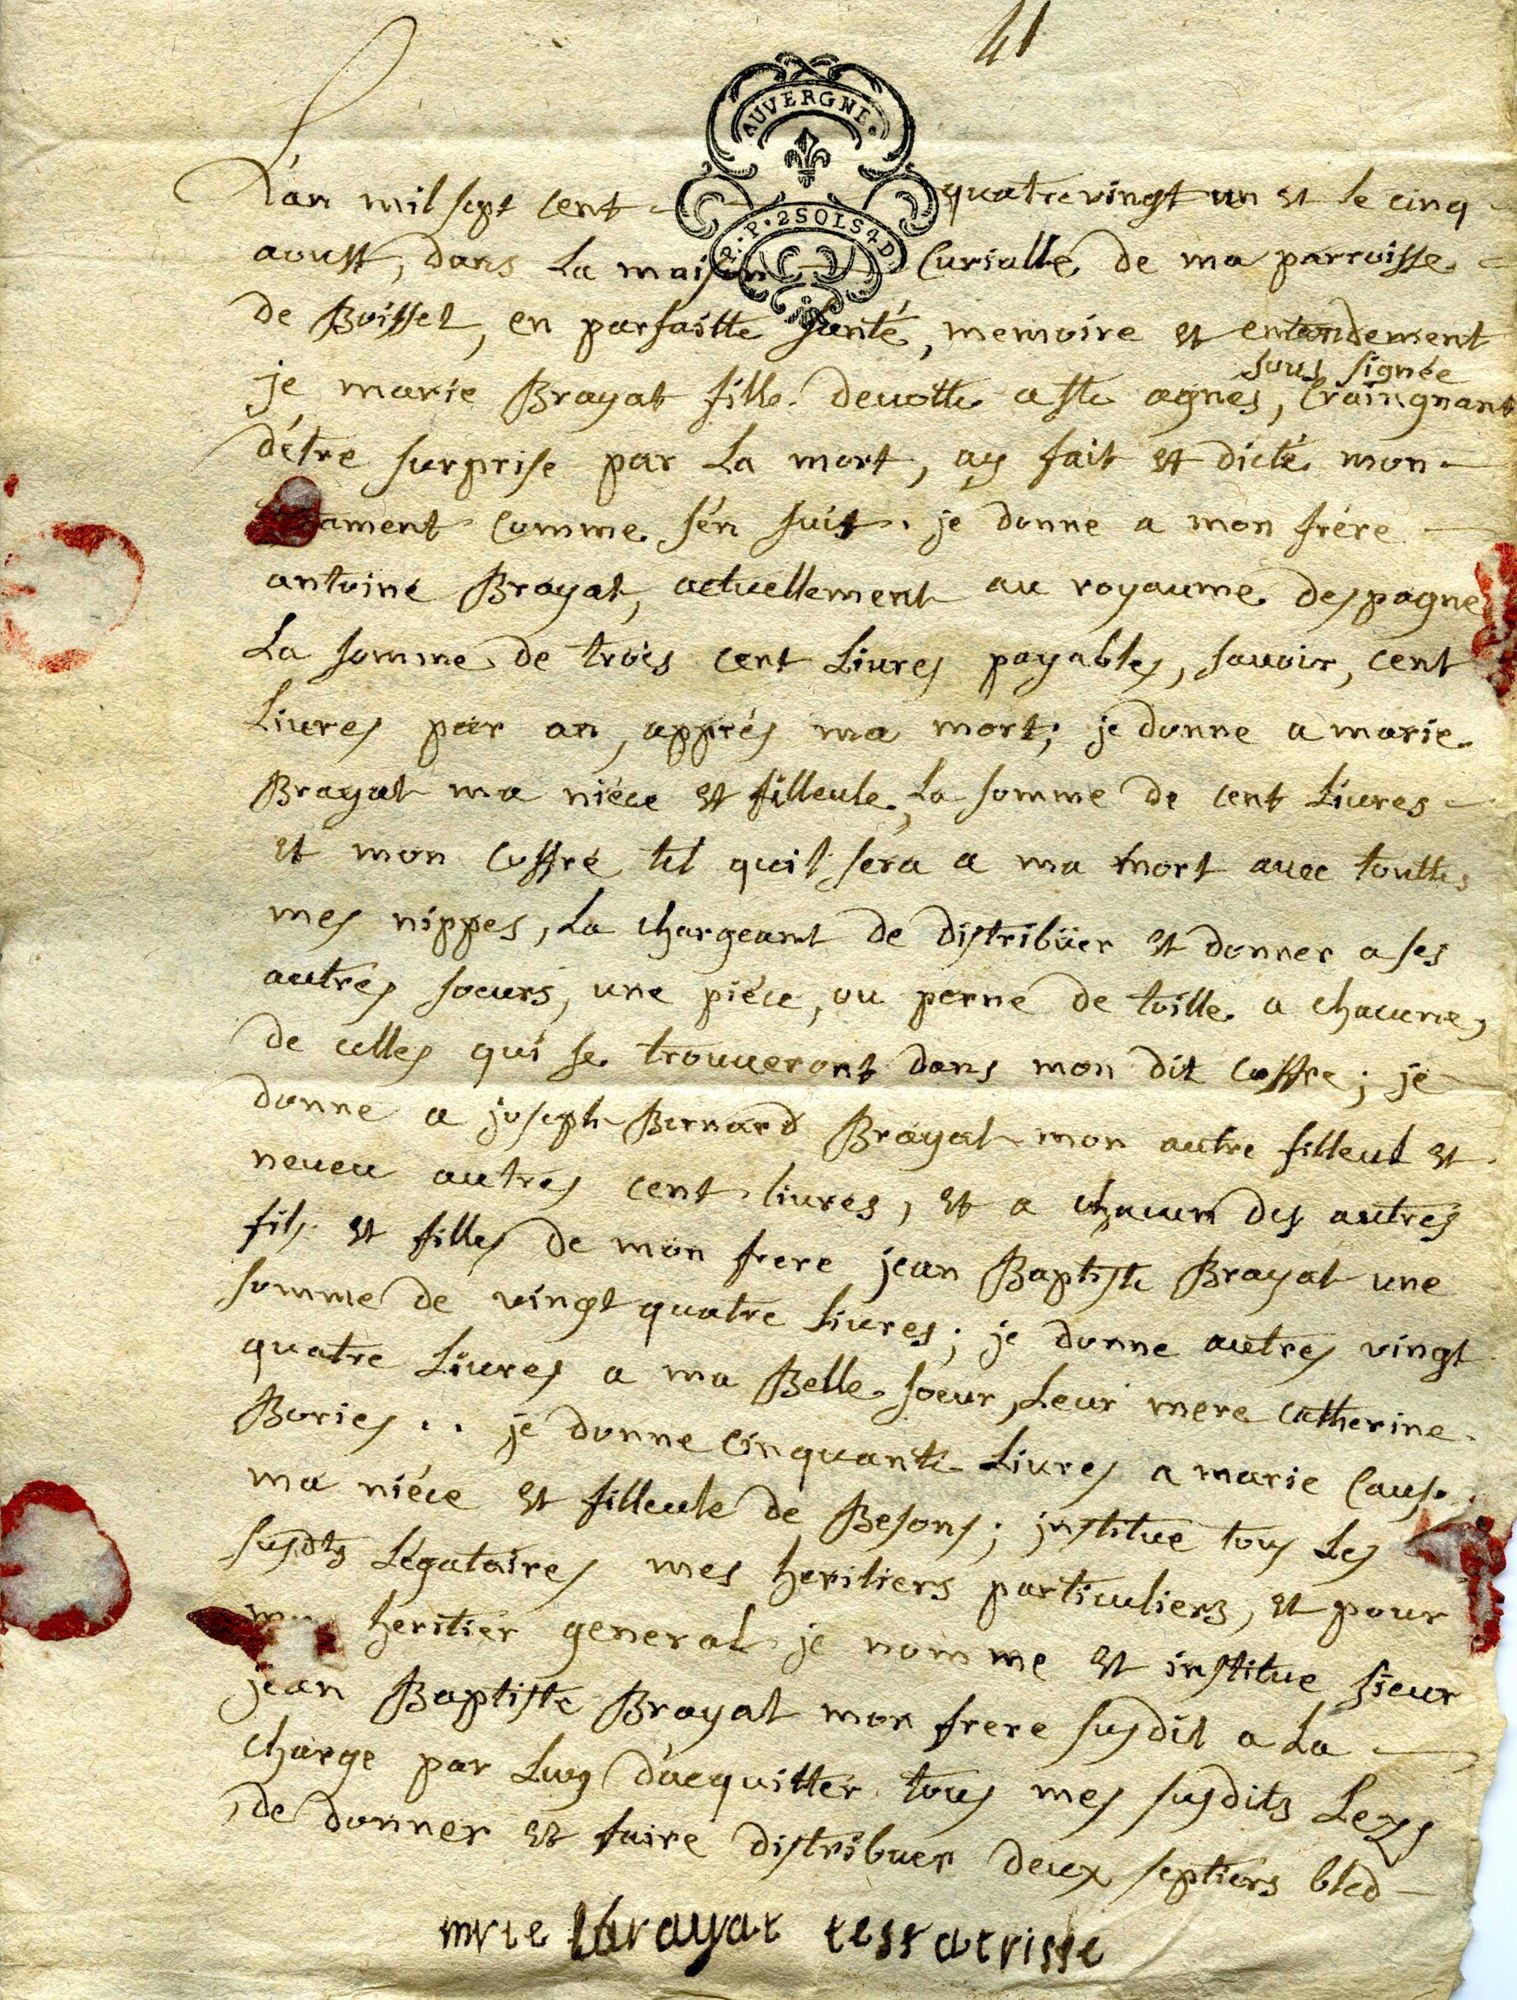 41
AUVERGNE.
P. P. 2 SOLS 4 D.
L'an mil sept cent quatre vingt un et le cinq
aoust, dans La maison Curialle de ma parroisse
de Boisset, en parfaitte santé, memoire et entandement
sous signée
je marie Brayat fille devotte a ste agnes, Craingnant
d'étre surprise par La mort, ay fait et dicté mon
ament Comme s'en suit. je donne a mon frére
antoine Brayat, actuellement au royaume despagne
La somme de trois cent Livres payables, savoir, cent
Livres par an, apprés ma mort; je donne a marie
Brayat ma niéce et filleule, La somme de cent Livres
et mon Coffre tel quil sera a ma mort avec touttes
mes nippes, La chargeant de distribüer et donner a ses
autres soeurs, une piéce, ou perne de toille a chacune,
de celles qui se trouveront dans mon dit Coffre; je
donne a joseph Bernard Brayat mon autre filleul et
neveu autres cent livres, et a chacun des autres
fils et filles de mon frere jean Baptiste Brayat une
somme de vingt quatre Livres; je donne autres vingt
quatre Livres a ma Belle soeur, Leur mere Catherine
Bories.. je donne Cinquante Livres a marie Caus
ma niéce et filleule de Besons; institue tous Les
susdts Légataires mes heritiers particuliers, et pour
heritier general je nomme et institue sieur
jean Baptiste Brayat mon frere susdit a La
charge par Luy d'acquitter tous mes susdits Legs
de donner et faire distribuer deux septiers bled
mrie brayat testatrisse